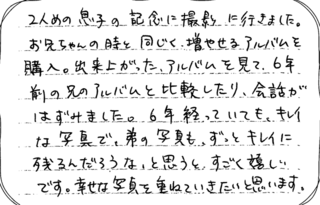 2人めの息子の記念に撮影に行きました。
お兄ちゃんの時と同じく、増やせるアルバムを
購入。出来上がった、アルバムを見て、6年
前の兄のアルバムと比較したり、会話が
はずみました。6年経っていても、キレイ
な写真で、弟の写真も、ずっとキレイに
残るんだろうな、と思うと、すごく嬉しい
です。幸せな写真を重ねていきたいと思います。